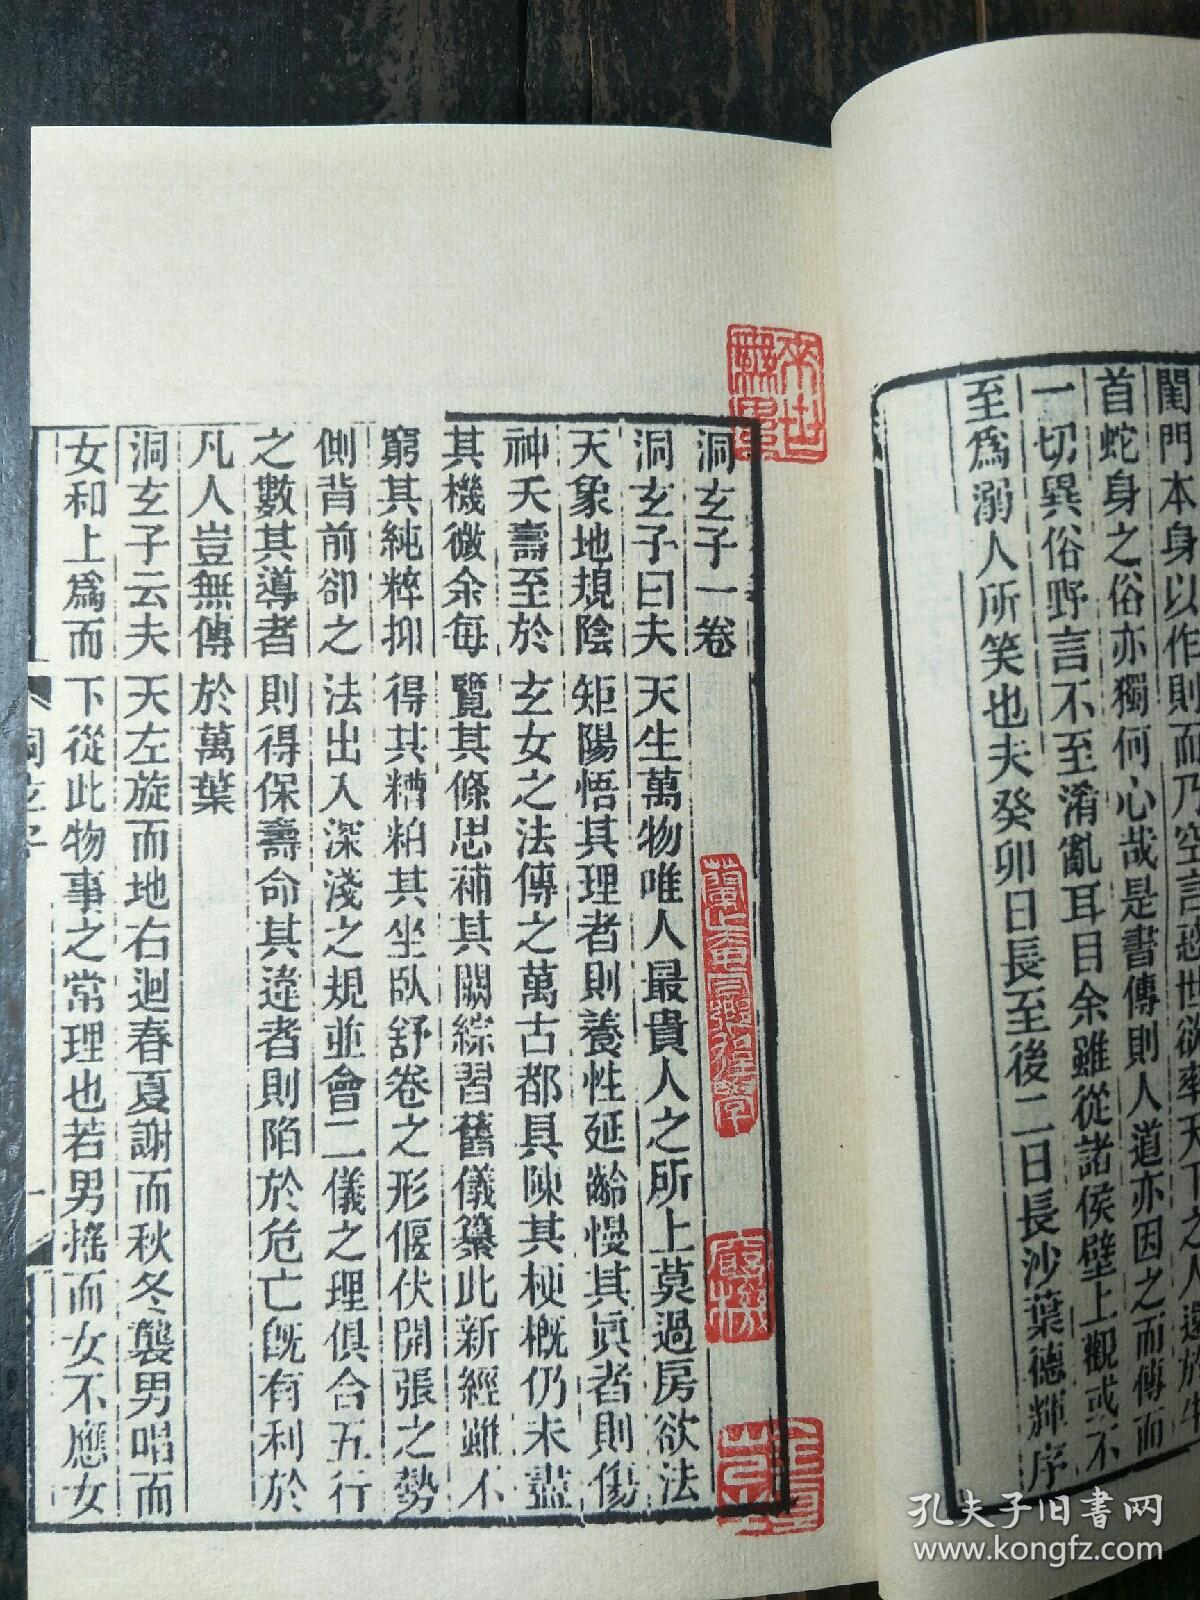 閨門本身以作則而乃空言惑世欲率天下之人還於生
首蛇身之俗亦獨何心哉是書傳則人道亦因之而傳而
一切異俗野言不至淆亂耳目余雖從諸侯壁上觀或不
至為溺人所笑也夫癸卯日長至後二日長沙葉德輝序
洞玄子一卷
洞玄子曰夫天生萬物唯人最貴人之所上莫過房欲法
天象地規陰矩陽悟其理者則養性延齡慢其眞者則傷
神夭壽至於玄女之法傳之萬古都具陳其梗概仍未盡
其機微余每覽其條思補其闕綜習舊儀纂此新經雖不
窮其純粹抑得其糟粕其坐臥舒卷之形偃伏開張之勢
側背前卻之法出入深淺之規並會二儀之理俱合五行
之數其導者則得保壽命其違者則陷於危亡旣有利於
凡人豈無傳於萬葉
洞玄子云夫天左旋而地右迴春夏謝而秋冬襲男唱而
女和上爲而下從此物事之常理也若男搖而女不應女
洞玄子
一
孔夫子旧书网
www.kongfz.com